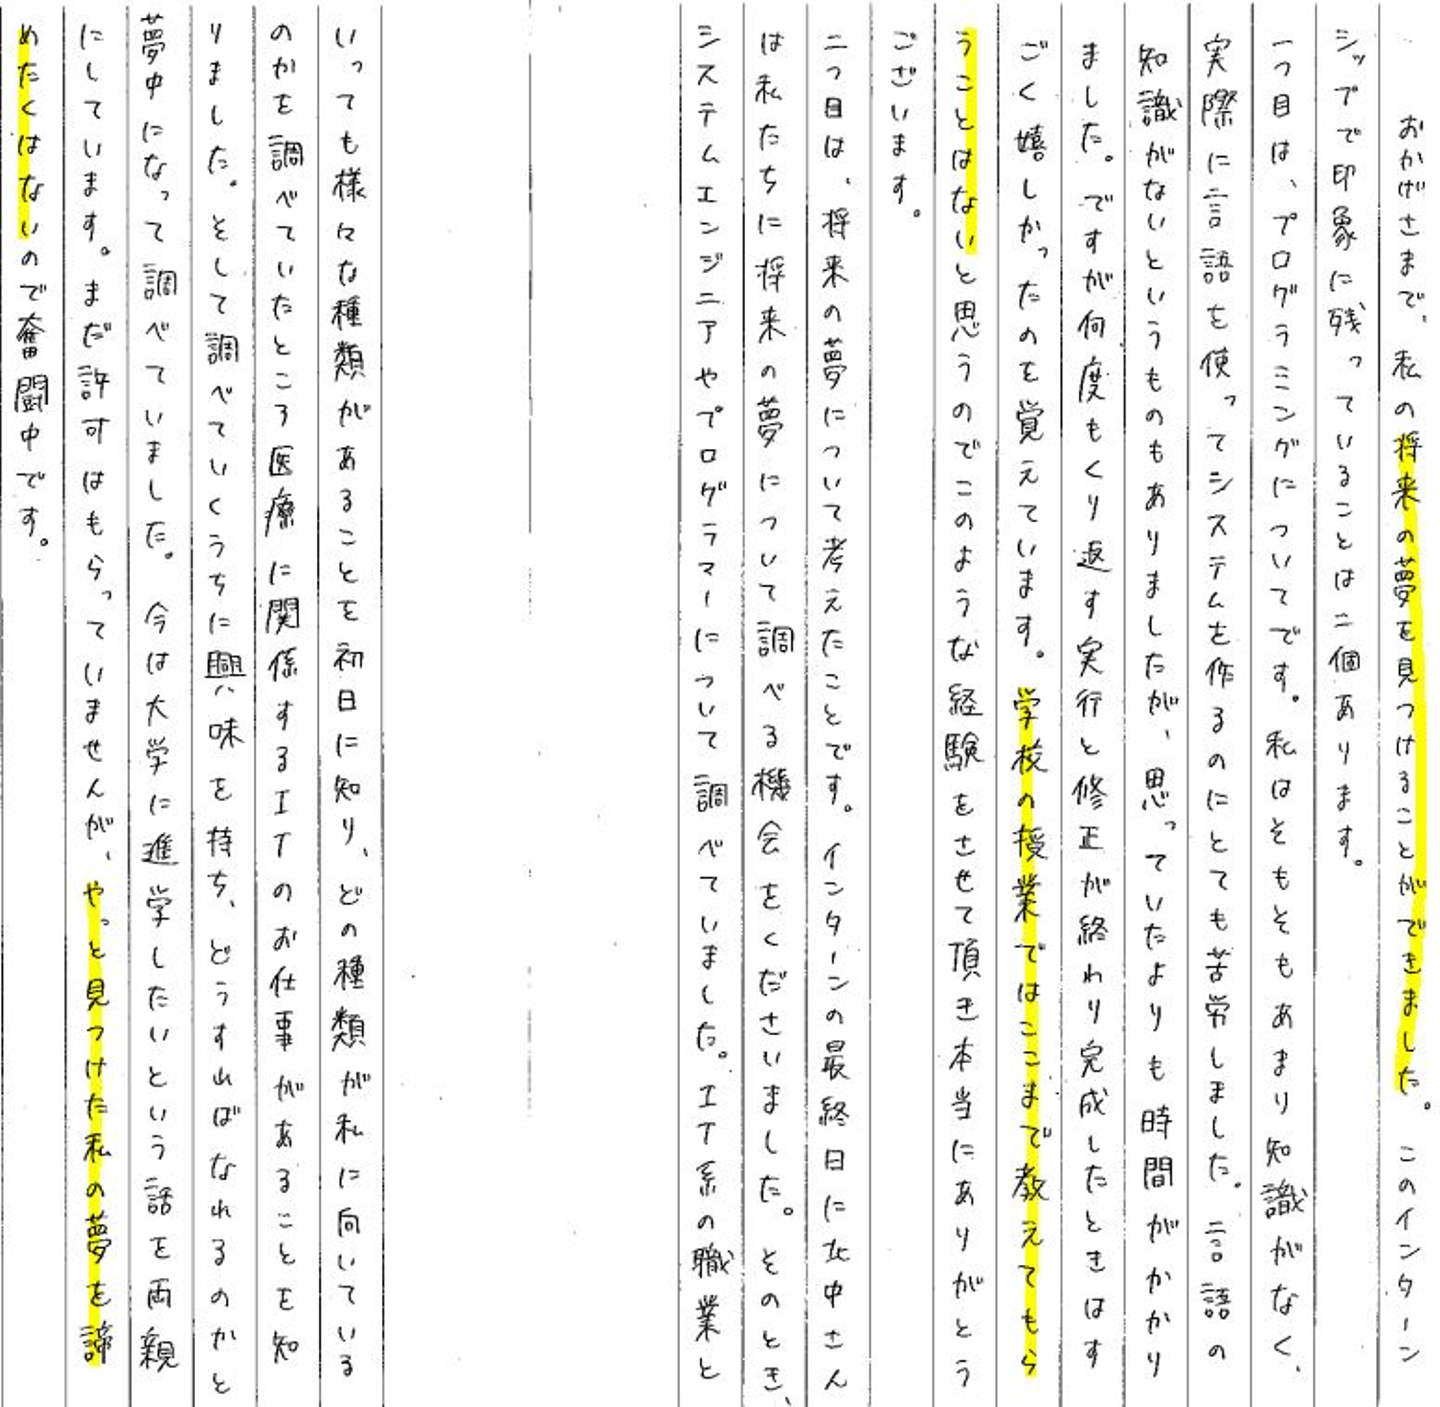 おかげさまで、私の将来の夢を見つけることができました。このインターン
シップで印象に残っていることは二個あります。
一つ目は、プログラミングについてです。私はそもそもあまり知識がなく、
実際に言語を使ってシステムを作るのにとても苦労しました。言語の
知識がないというものもありましたが、思っていたよりも時間がかかり
ました。ですが何度もくり返す実行と修正が終わり完成したときはす
ごく嬉しかったのを覚えています。学校の授業ではここまで教えてもら
うことはないと思うのでこのような経験をさせて頂き本当にありがとう
ございます。
二つ目は、将来の夢について考えたことです。インターンの最終日に北中さん
は私たちに将来の夢について調べる機会をくださいました。そのとき、
システムエンジニアやプログラマーについて調べていました。IT系の職業と
いっても様々な種類があることを初日に知り、どの種類が私に向いている
のかを調べていたところ医療に関係するITのお仕事があることを知
りました。そして調べていくうちに興味を持ち、どうすればなれるのかと
夢中になって調べていました。今は大学に進学したいという話を両親
にしています。まだ許可はもらっていませんが、やっと見つけた私の夢を諦
めたくはないので奮闘中です。